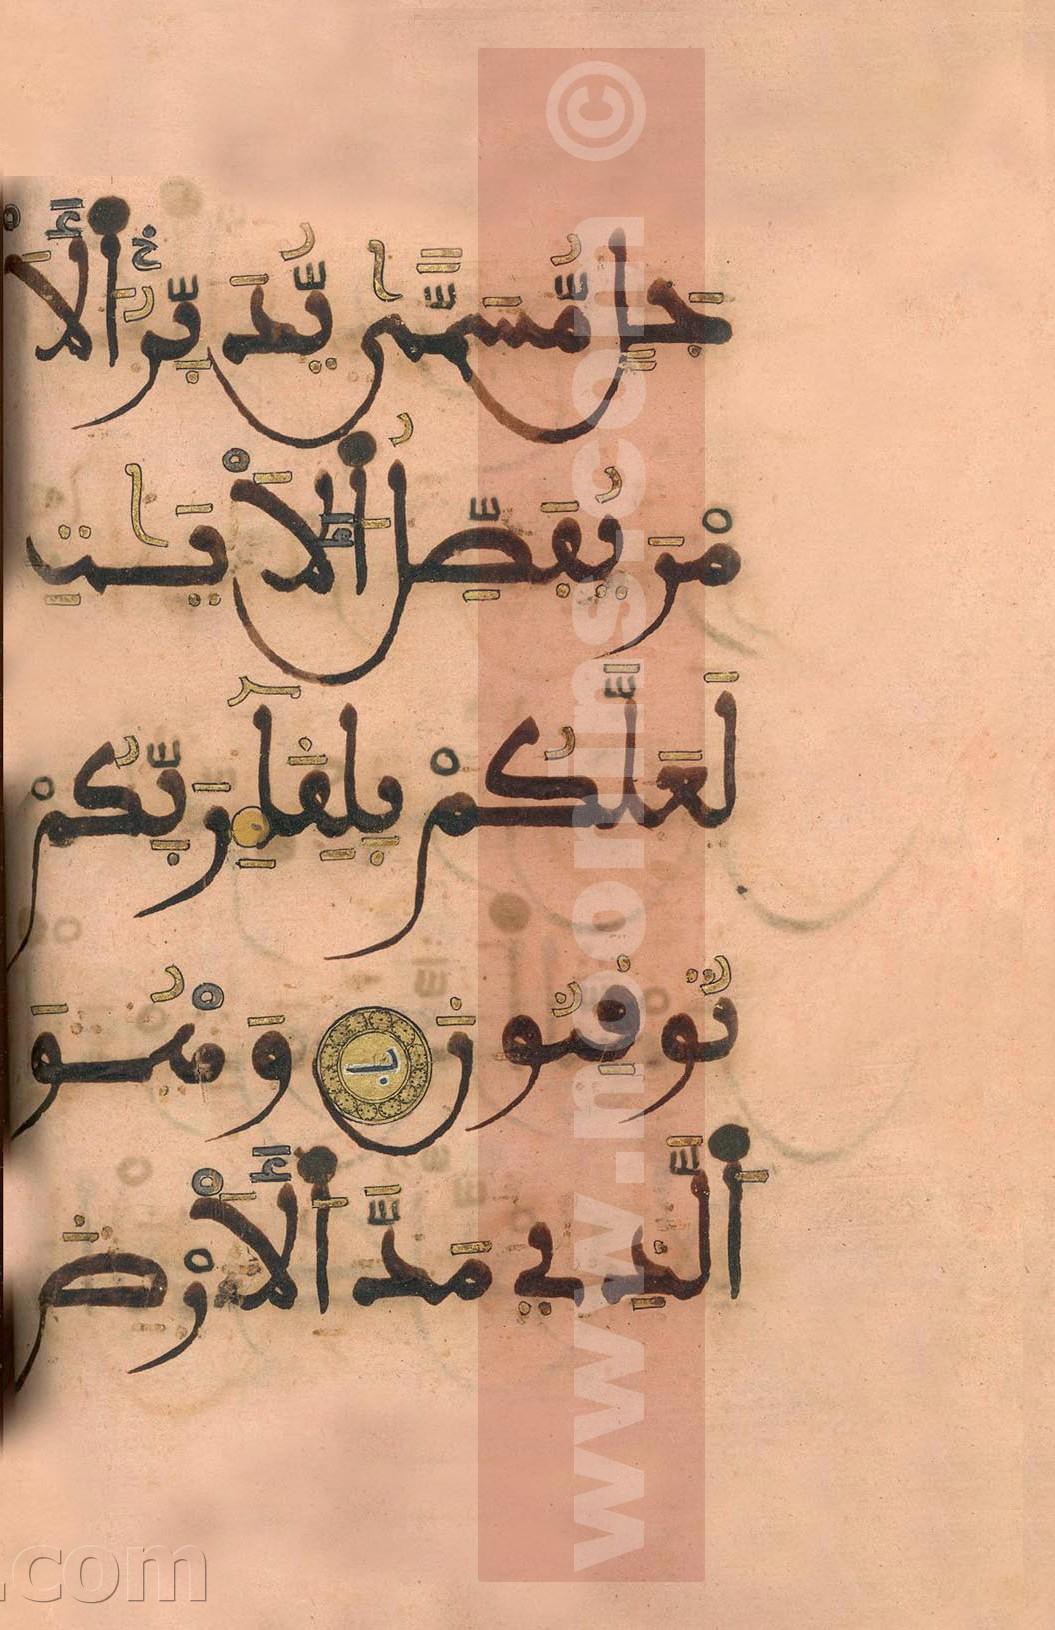 جَلٖ مُّسَمًّى يُدَبِّرُ اُ۬لَا
مْرَ يُفَصِّلُ اُ۬لَايَٰتِ
لَعَلَّكُم بِلِقَآءِ رَبِّكُمْ
تُوقِنُونَ وَهُوَ
اَ۬لَّذِي مَدَّ اَ۬لَارْضَ
© www.noorins.com
.com